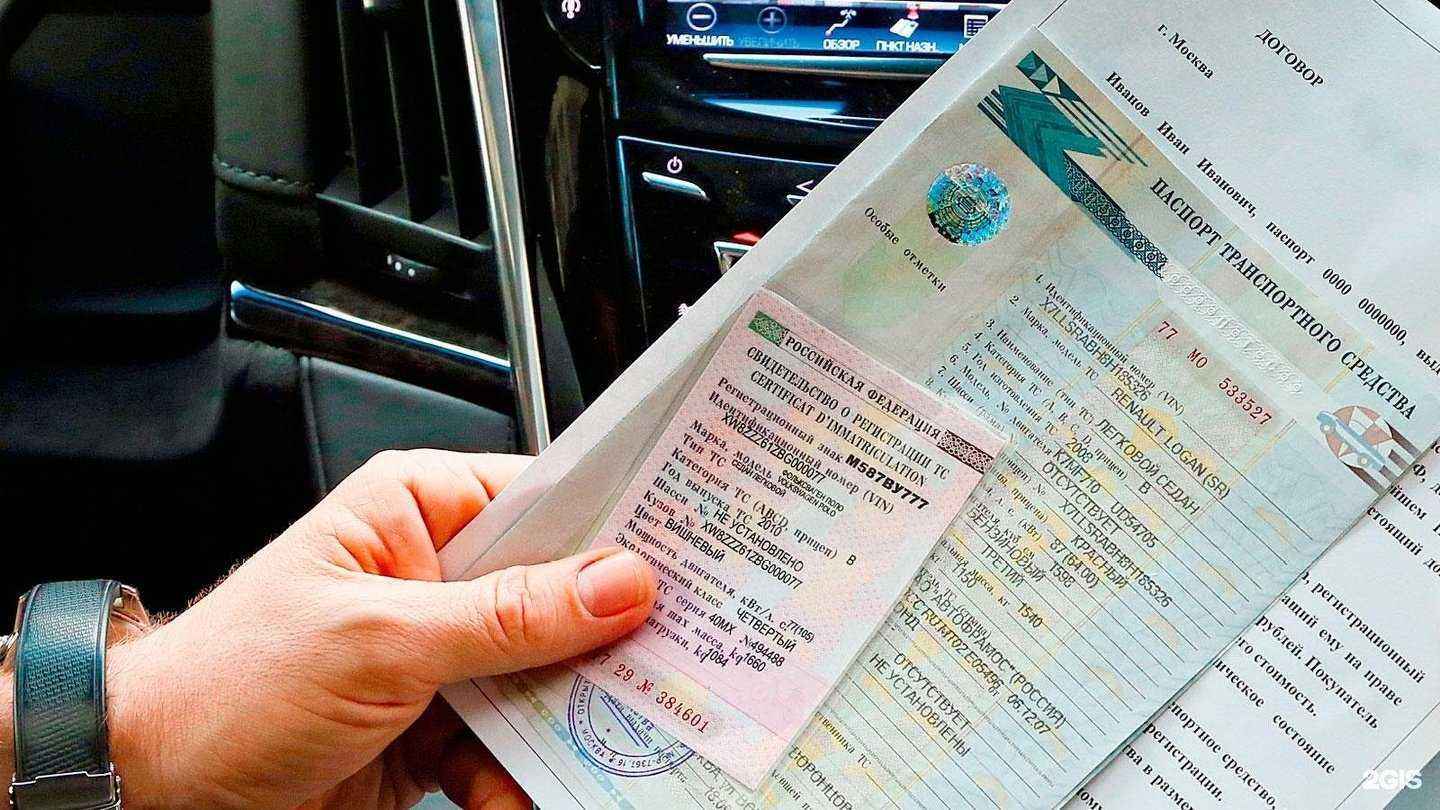 УМЕНЬШИТЬ УВЕЛИЧИТЬ ОБЗОР ПНКТ НАЗН.
ДОГОВОР
г. Москва
Иванов Иван Иванович, паспорт 0000 0000000,
ПАСПОРТ ТРАНСПОРТНОГО СРЕДСТВА
77 МО 533527
Особые отметки
1. Идентификационный номер (VIN)
X7LLSRABH8H165326
2. Марка, модель ТС RENAULT LOGAN(SR)
3. Наименование (тип ТС) ЛЕГКОВОЙ СЕДАН
4. Категория ТС (А, В, С, D, прицеп) В
5. Год изготовления ТС
6. Модель, № двигателя K7MF710 UD54705
7. Шасси
ОТСУТСТВУЕТ
X7LLSRABH8H165326
КРАСНЫЙ
87(64.00)
1598
БЕНЗИНОВЫЙ
ТРЕТИЙ
масса, кг 1540
"АВТОФРАМОС"(РОССИЯ)
06.12.07
ОТСУТСТВУЕТ
НЕ УСТАНОВЛЕНЫ
РОССИЙСКАЯ ФЕДЕРАЦИЯ
СВИДЕТЕЛЬСТВО О РЕГИСТРАЦИИ ТС
CERTIFICAT D'IMMATRICULATION
Регистрационный знак М587ВУ777
Идентификационный номер (VIN)
XW8ZZZ61ZBG000077
Марка, модель ФОЛЬКСВАГЕН ПОЛО
VOLKSWAGEN POLO
Тип ТС СЕДАН ЛЕГКОВОЙ
Категория ТС (ABCD, прицеп) В
Год выпуска ТС 2010
Шасси № НЕ УСТАНОВЛЕНО
Кузов № XW8ZZZ61ZBG000077
Цвет ВИШНЕВЫЙ
Мощность двигателя, кВт/л. с. 77(105)
Экологический класс ЧЕТВЕРТЫЙ
ТС серия 40МХ №494488
max масса, kg 1660
нагрузки, kg 1084
77 29 № 384601
регистрационный
ему на праве
рублей. Покупатель
стоимость.
состояние
средство
регистрации.
2GIS